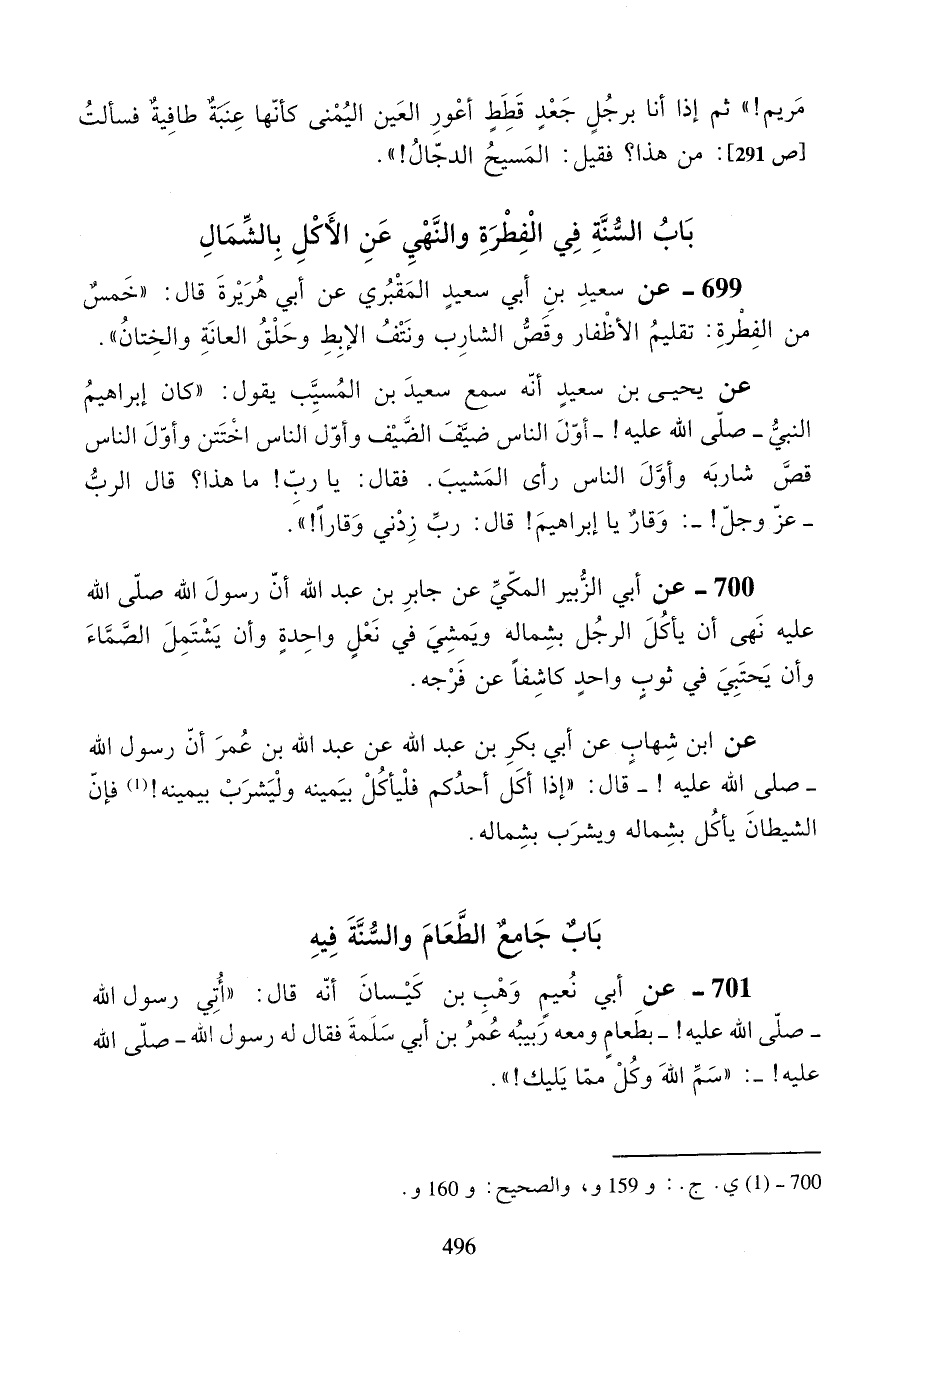 مَريم!» ثم إذا أنا برجُلٍ جَعْدٍ قَطِطٍ أعْورِ العَين اليُمْنى كأنّها عِنَبَةٌ طافِيةٌ فسألتُ
[ص 291]: من هذا؟ فقيل: المَسيحُ الدجّالُ!».
بَابُ السُّنَّةِ فِي الْفِطْرَةِ والنَّهْيِ عَنِ الأَكْلِ بِالشِّمَالِ
699 ـ عن سعيدِ بنِ أبي سعيدٍ المَقْبُري عن أبي هُرَيْرةَ قال: «خَمسٌ
من الفِطْرةِ: تقليمُ الأظْفار وقَصُّ الشارِب ونَتْفُ الإبِطِ وحَلْقُ العانَةِ والخِتانُ».
عن يحيـى بن سعيدٍ أنّه سمع سعيدَ بن المُسيَّب يقول: «كان إبراهيمُ
النبيُّ ـ صلّى الله عليه! ـ أوّلَ الناس ضيَّفَ الضَّيْف وأوّل الناس اخْتَتن وأوّلَ الناس
قصَّ شاربَه وأوَّلَ الناس رأى المَشيبَ. فقال: يا ربِّ! ما هذا؟ قال الربُّ
ـ عزّ وجلّ! ـ: وَقارٌ يا إبراهيمَ! قال: ربِّ زِدْني وَقاراً!».
700 ـ عن أبي الزُّبير المكّيِّ عن جابرِ بن عبد الله أنّ رسولَ الله صلّى الله
عليه نَهى أن يأكُلَ الرجُل بشِماله ويَمشِيَ في نَعْلٍ واحِدةٍ وأن يَشْتَمِلَ الصَّمَّاءَ
وأن يَحتَبِيَ في ثوبٍ واحدٍ كاشِفاً عن فَرْجه.
عن ابن شِهابٍ عن أبي بكرِ بن عبد الله عن عبد الله بن عُمرَ أنّ رسول الله
ـ صلى الله عليه ! ـ قال: «إذا أكَل أحدُكم فلْيأكُلْ بيَمينه ولْيَشرَبْ بيمينه!(1) فإنّ
الشيطانَ يأكُل بشِماله ويشرَب بشِماله.
بَابٌ جَامِعُ الطَّعَامَ والسُّنَّةَ فِيهِ
701 ـ عن أبي نُعيمٍ وَهْبِ بن كَيْسانَ أنّه قال: «أُتِي رسول الله
ـ صلّى الله عليه! ـ بطَعامٍ ومعه رَبيبُه عُمرُ بن أبي سَلَمةَ فقال له رسول الله ـ صلّى الله
عليه! ـ: «سَمِّ اللهَ وكُلْ ممّا يَليك!».
700 ـ (1) ي. ج. : و 159 و، والصحيح: و 160 و.
496